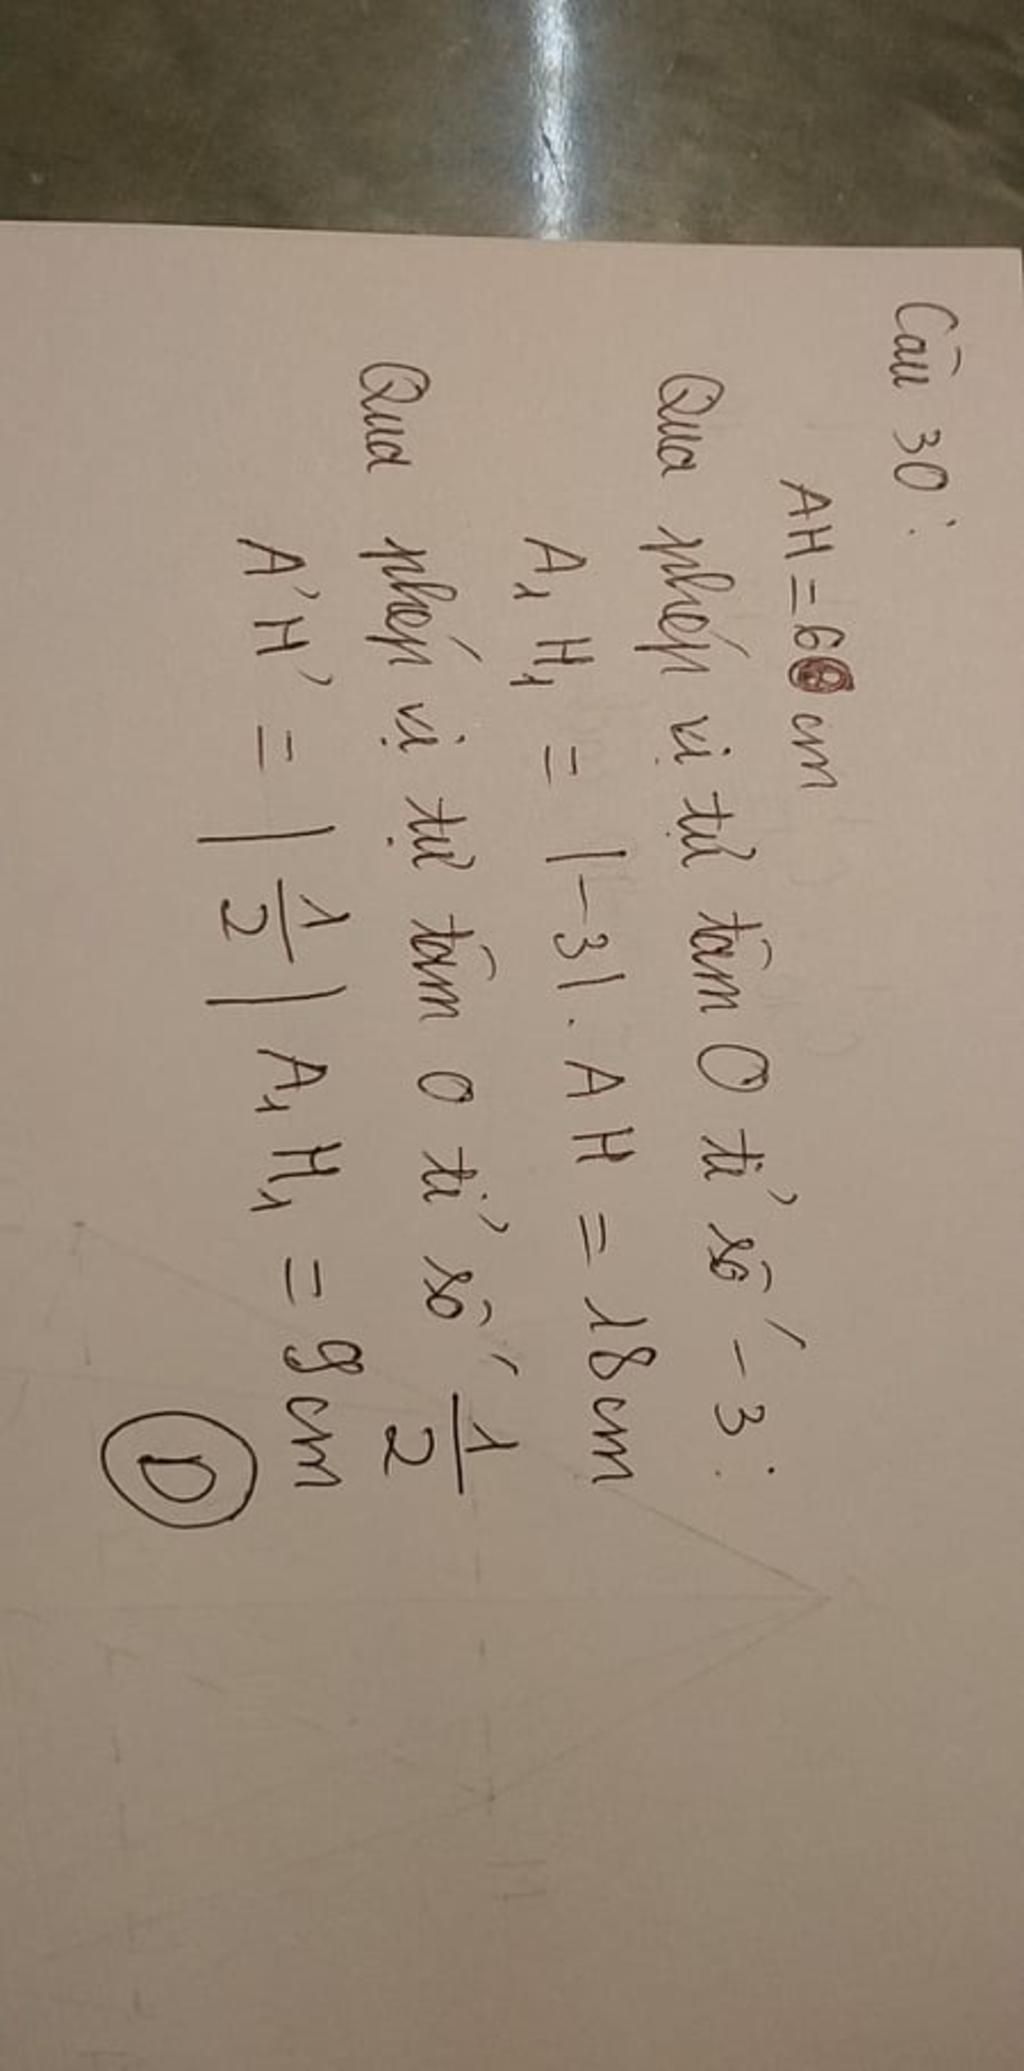 Câu 30:
AH = 6 cm
Qua phép vị tự tâm O tỉ số -3:
A₁H₁ = |-3|. AH = 18cm
Qua phép vị tự tâm O tỉ số 1/2
A'H' = |1/2| A₁H₁ = 9cm
D